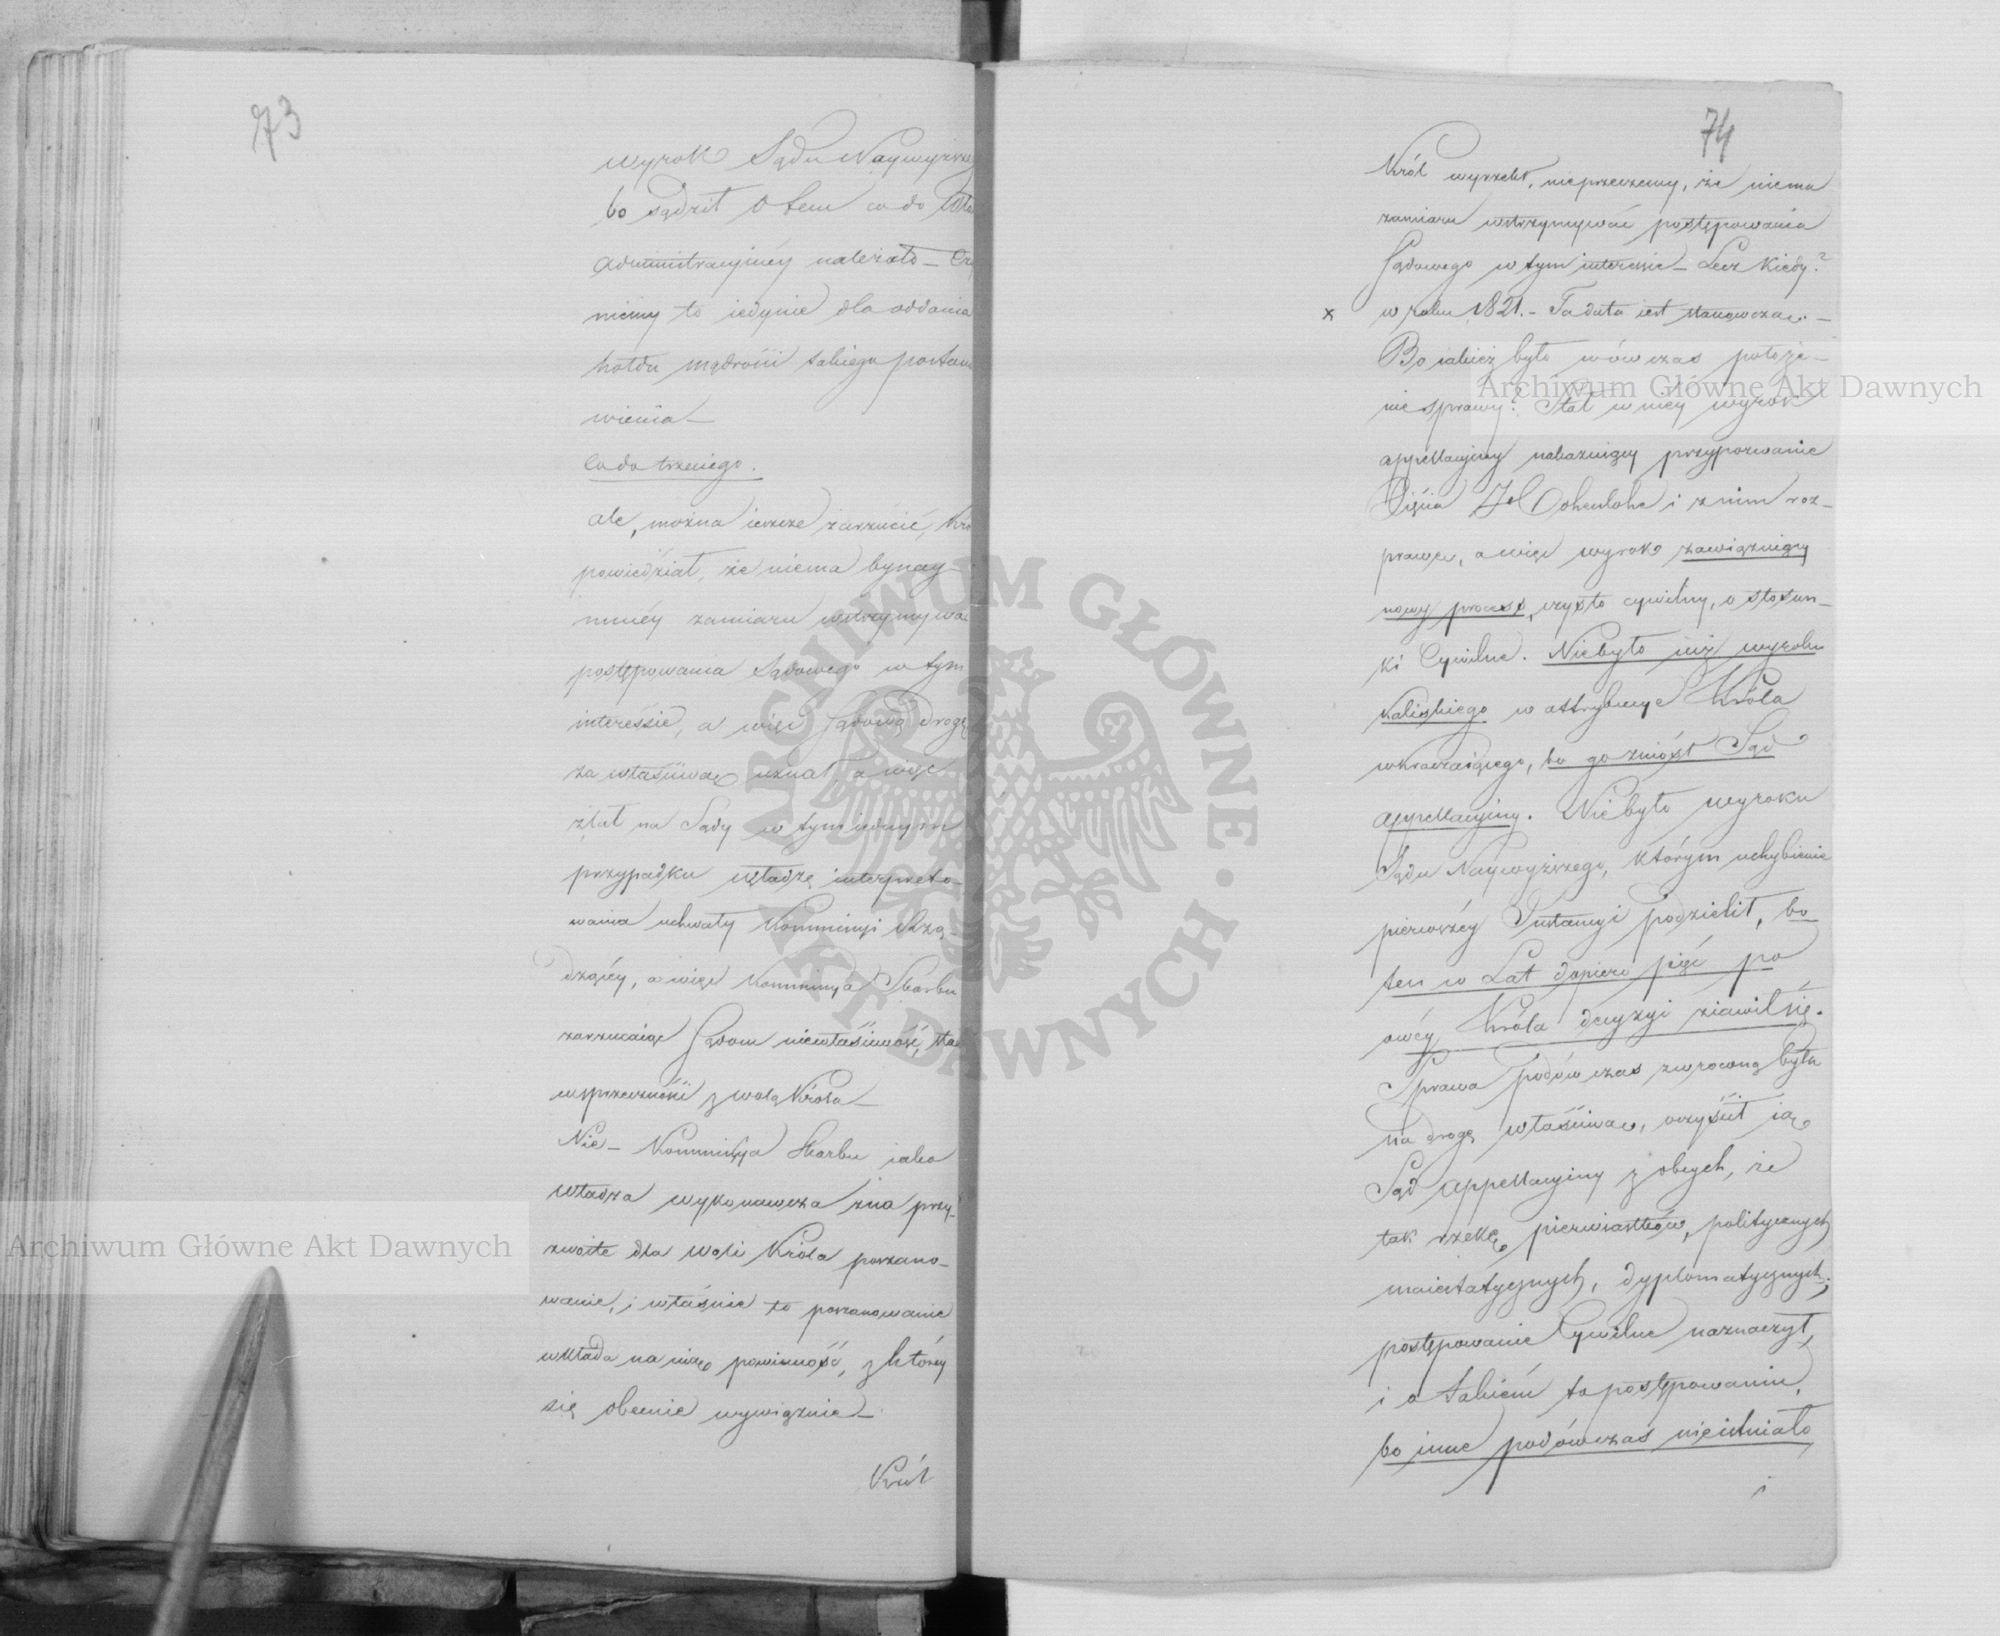 73
wyrok Sądu Naywyższe
bo sądził o tem co do Wła
administracyinéy należało –
nimy to iedynie dla oddania
hołdu mądrości takiego postano
wienia –
Co do trzeciego.
ale, można ieszcze zarzucić, Kró
powiedział, że niema bynay-
mniéy zamiaru wstrzymywa
postępowania Sądowego w tym
interessie, a więc Sądową drogę
za właściwą uznał, a więc
zlał na Sądy w tym iednym
przypadku władzę interpreto-
wania uchwały Kommissyi Rzą-
dzącéy, a więc Kommissya Skarbu
zarzucaiąc Sądom niewłaściwość, sta
w sprzeczności z wolą Króla –
Nie – Kommissya Skarbu iako
władza wykonawcza zna przy-
zwoite dla woli Króla poszano-
wanie, i właśnie to poszanowanie
wkłada na nią powinność, z któréy
się obecnie wywiązuie –
Król
74
Król wyrzekł, nieprzeczemy, że niema
zamiaru wstrzymywać postępowania
Sądowego w tym interessie – Lecz kiedy?
x w roku 1821. – Ta data iest stanowczą. –
Bo iakież było wówczas położe-
nie sprawy? Stał w niéy wyrok
appellacyiny nakazuiący przypozwanie
Xięcia Hohenlohe i z nim roz-
prawę, a więc wyrok zawiązuiący
nowy process, czysto cywilny, o stosun-
ki Cywilne. Niebyło iuż wyroku
Kaliskiego w attrybucye Króla
wkraczaiącego, bo go zniósł Sąd
appellacyiny. Niebyło wyroku
Sądu Naywyższego, którym uchybienie
pierwszéy Instancyi podzielił, bo
ten w Lat dopiero pięć po
owéy Króla decyzyi ziawił się.
Sprawa podówczas zwróconą była
na drogę właściwą, oczyścił ią
Sąd appellacyiny z obcych, że
tak rzekę pierwiastków, politycznych
maiestatycznych, dyplomatycznych;
postępowanie Cywilne naznaczył,
i o takiém to postępowaniu,
bo inne podówczas nieistniało
i
Archiwum Główne Akt Dawnych
Archiwum Główne Akt Dawnych
ARCHIWUM GŁÓWNE AKT DAWNYCH